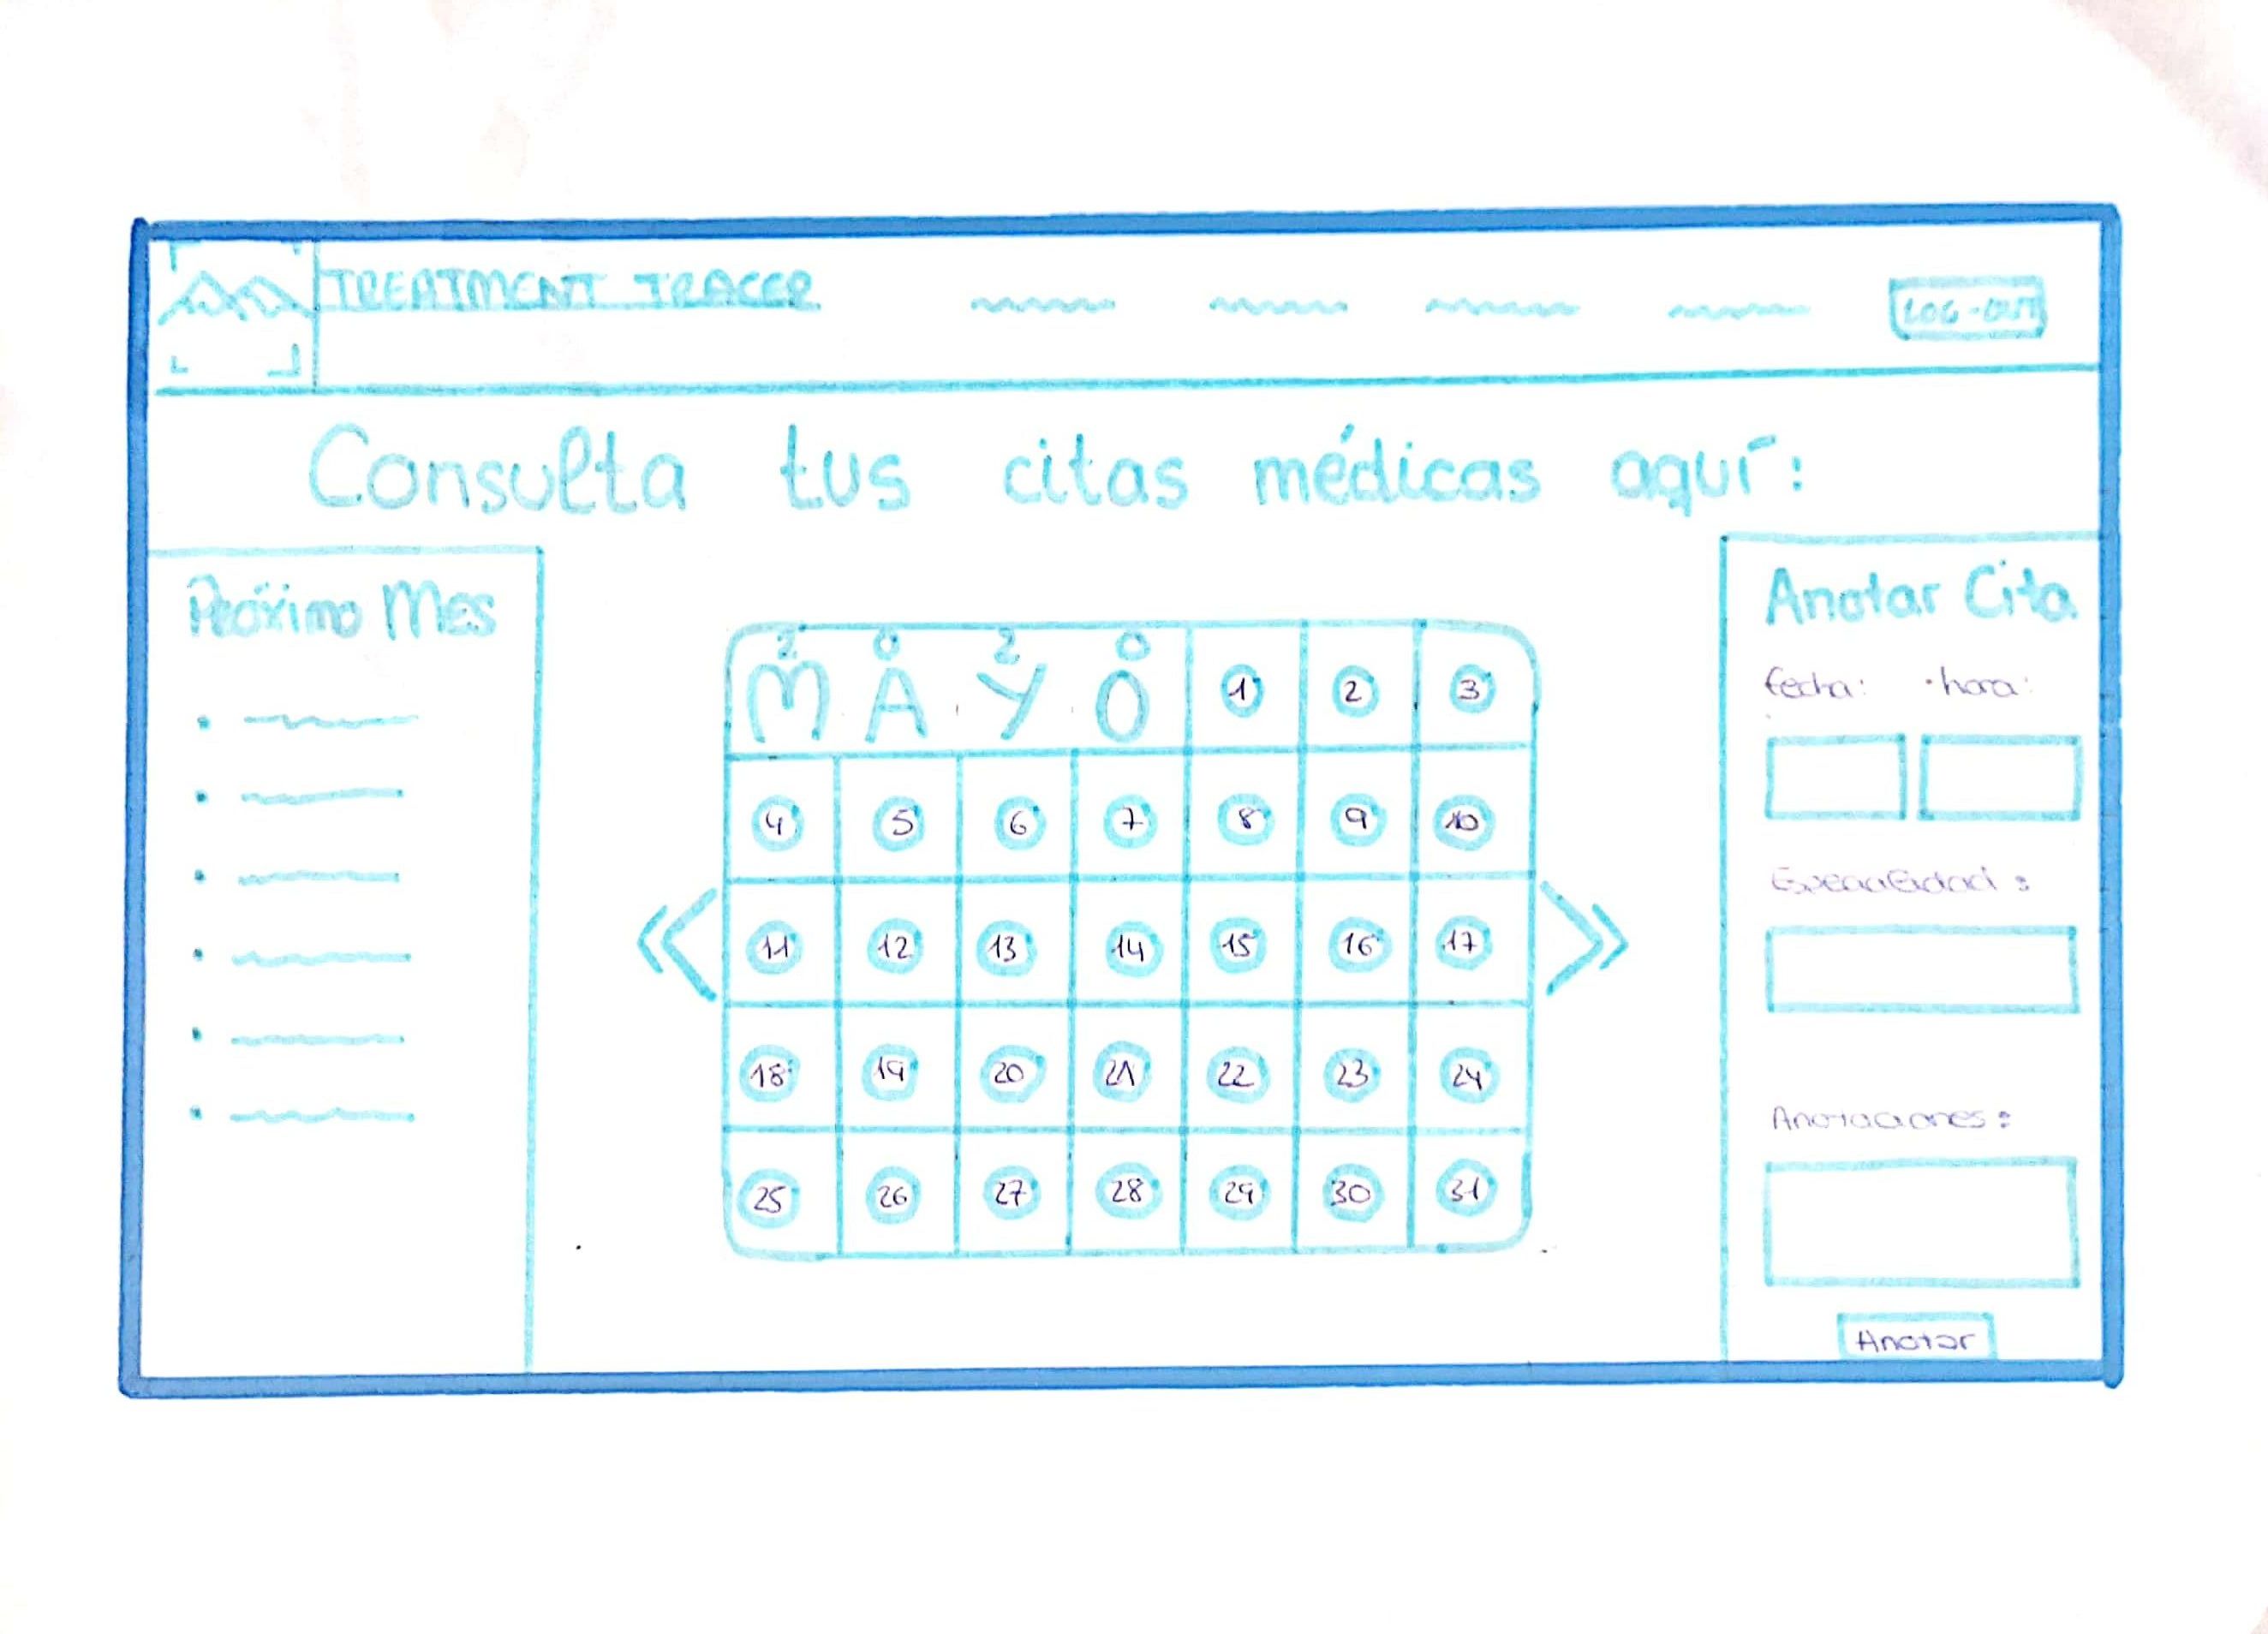 TREATMENT TRACER
LOG-OUT
Consulta tus citas médicas aquí:
Próximo Mes
2 0 2 0
MAYO 1 2 3
4 5 6 7 8 9 10
11 12 13 14 15 16 17
18 19 20 21 22 23 24
25 26 27 28 29 30 31
Anotar Cita
fecha: hora:
Especialidad:
Anotaciones:
Anotar